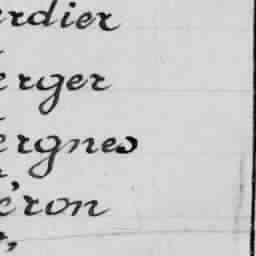 erdier
erger
ergnes
éron